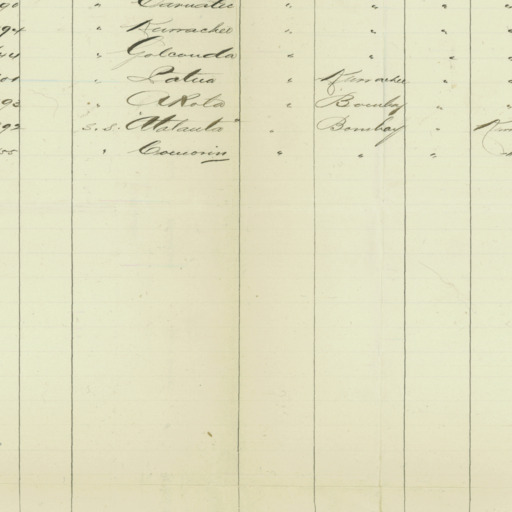 90 " Carnatic " " "
94 " Kurrachee " " "
44 " Golconda " " " "
101 " Patna " Kurrachee " "
93 " " Akola " Bombay " "
92 S.S. "Atalanta" " Bombay " Kurr
55 " Comorin " " "